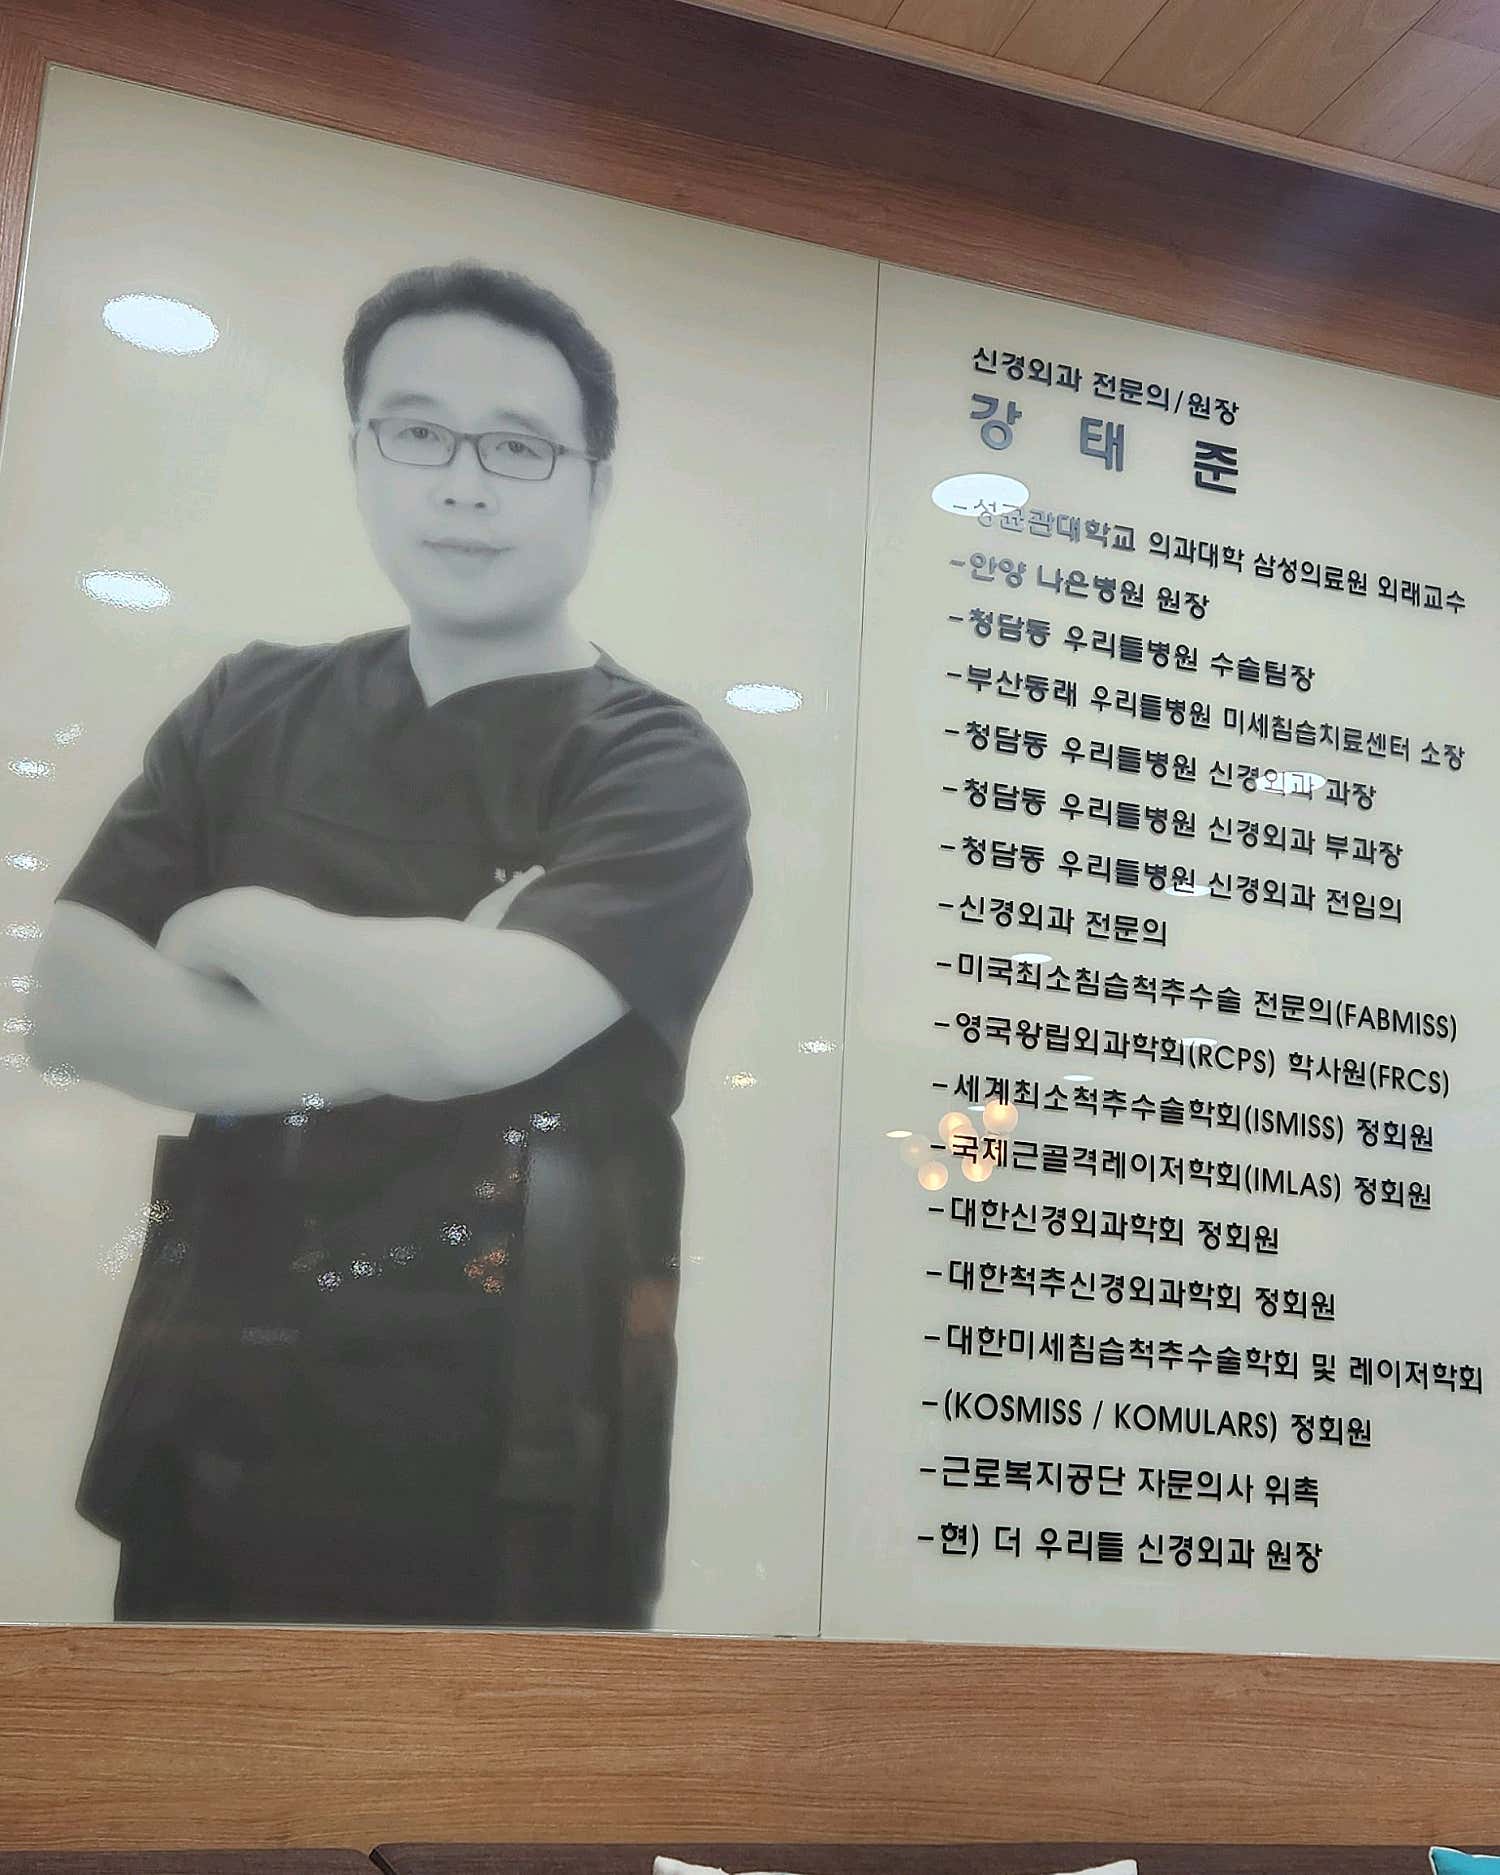 신경외과 전문의/원장
강 태 준
-성균관대학교 의과대학 삼성의료원 외래교수
-안양 나은병원 원장
-청담동 우리들병원 수술팀장
-부산동래 우리들병원 미세침습치료센터 소장
-청담동 우리들병원 신경외과 과장
-청담동 우리들병원 신경외과 부과장
-청담동 우리들병원 신경외과 전임의
-신경외과 전문의
-미국최소침습척추수술 전문의(FABMISS)
-영국왕립외과학회(RCPS) 학사원(FRCS)
-세계최소척추수술학회(ISMISS) 정회원
-국제근골격레이저학회(IMLAS) 정회원
-대한신경외과학회 정회원
-대한척추신경외과학회 정회원
-대한미세침습척추수술학회 및 레이저학회
-(KOSMISS / KOMULARS) 정회원
-근로복지공단 자문의사 위촉
-현) 더 우리들 신경외과 원장